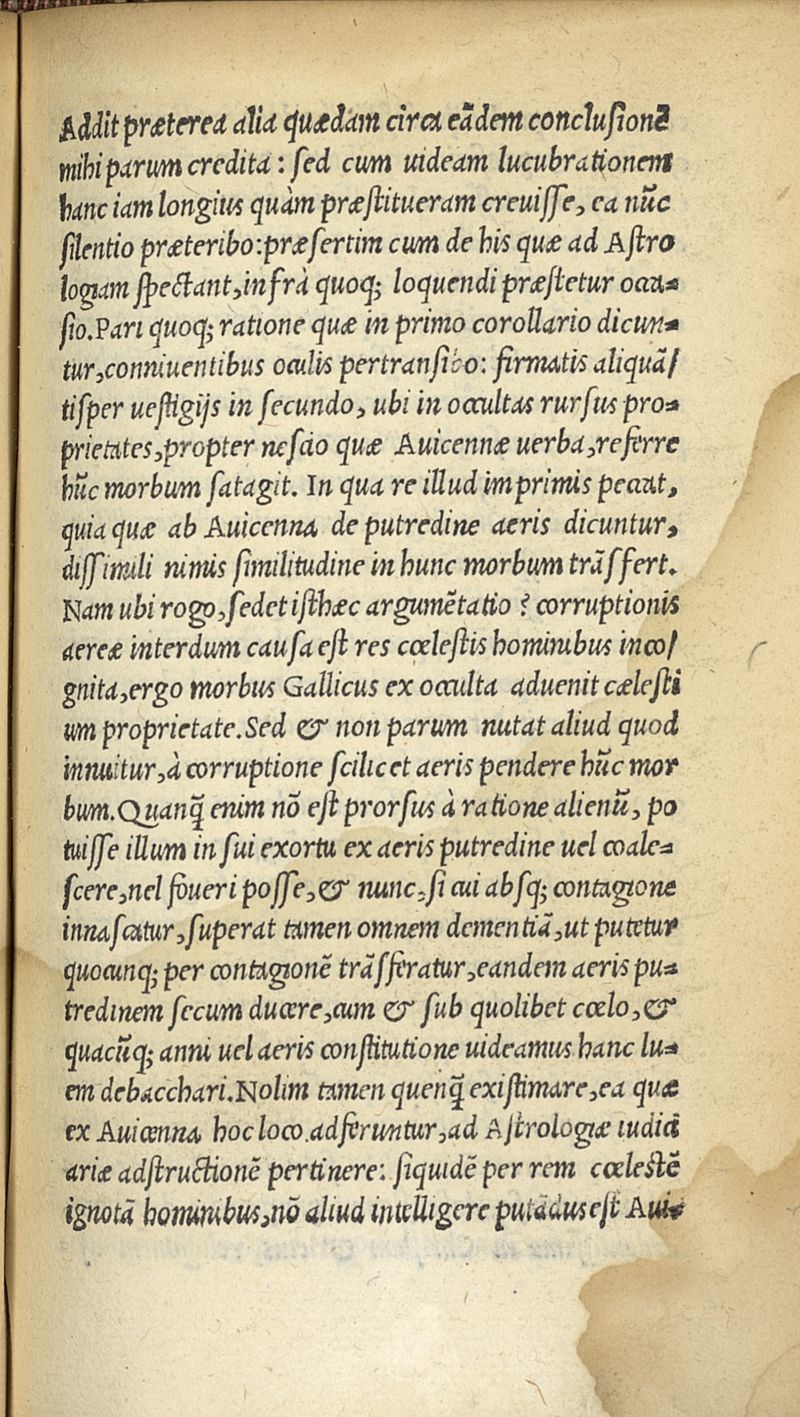 Addit præterea alia quædam circa eãdem conclusionẽ
mihi parum credita : sed cum uideam lucubrationem
hanc iam longius quàm præstitueram creuisse, ea nũc
silentio præteribo:præsertim cum de his quæ ad Astro
logiam spectant,infrà quoq; loquendi præstetur occa-
sio.Pari quoq; ratione quæ in primo corollario dicun-
tur,conniuentibus oculis pertransibo: firmatis aliquã/
tisper uestigijs in secundo, ubi in occultas rursus pro-
prietates,propter nescio quæ Auicennæ uerba,referre
hũc morbum satagit. In qua re illud imprimis peccat,
quia quæ ab Auicenna de putredine aeris dicuntur,
dissimili nimis similitudine in hunc morbum trãsfert.
Nam ubi rogo,sedet isthæc argumẽtatio ? corruptionis
aereæ interdum causa est res cœlestis hominibus inco/
gnita,ergo morbus Gallicus ex occulta aduenit cælesti
um proprietate.Sed & non parum nutat aliud quod
innuitur,à corruptione scilicet aeris pendere hũc mor
bum.Quanq̃ enim nõ est prorsus à ratione alienũ, po
tuisse illum in sui exortu ex aeris putredine uel coale-
scere,nel foueri posse,& nunc,si cui absq; contagione
innascatur,superat tamen omnem dementiã,ut putetur
quocunq; per contagionẽ trãsferatur,eandem aeris pu-
tredinem secum ducere,cum & sub quolibet cœlo,&
quacũq; anni uel aeris constitutione uideamus hanc lu-
em debacchari.Nolim tamen quenq̃ existimare,ea quæ
ex Auicenna hoc loco adferuntur,ad Astrologiæ iudici
ariæ adstructionẽ pertinere: siquidẽ per rem cœlestẽ
ignotã hominibus,nõ aliud intelligere putãdus est Aui-